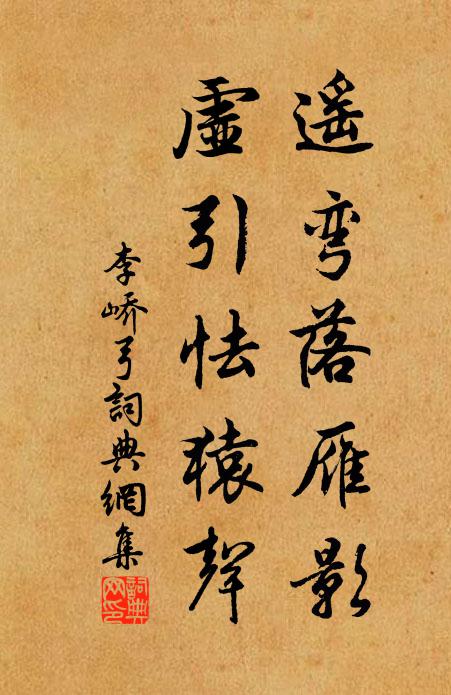 遥弯落雁影
虚引怯猿聲
李峤弓詞典網集